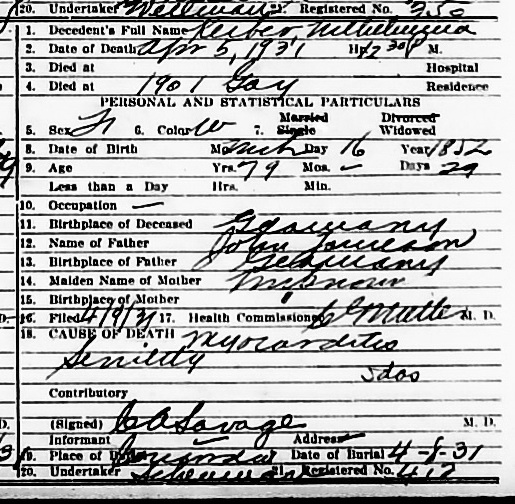 20. Undertaker 21. Registered No. 350
1. Decedent's Full Name Keiber, Wilhelmina
2. Date of Death Apr 5, 1931 Hr 12 30 P M.
3. Died at Hospital
4. Died at 1901 Gay Residence
PERSONAL AND STATISTICAL PARTICULARS
5. Sex F 6. Color W 7. Married Single Divorced Widowed
8. Date of Birth Mo. Mch Day 16 Year 1852
9. Age Yrs. 79 Mos. – Days 29
Less than a Day Hrs. Min.
10. Occupation —
11. Birthplace of Deceased Germany
12. Name of Father John
13. Birthplace of Father Germany
14. Maiden Name of Mother Unknown
15. Birthplace of Mother "
16. Filed 4/9/31 17. Health Commissioner M. D.
18. CAUSE OF DEATH Myocarditis
Senility
5 dos
Contributory
(Signed) C A Savage M. D.
Informant Address
19. Place of Date of Burial 4-8-31
20. Undertaker 21. Registered No. 417